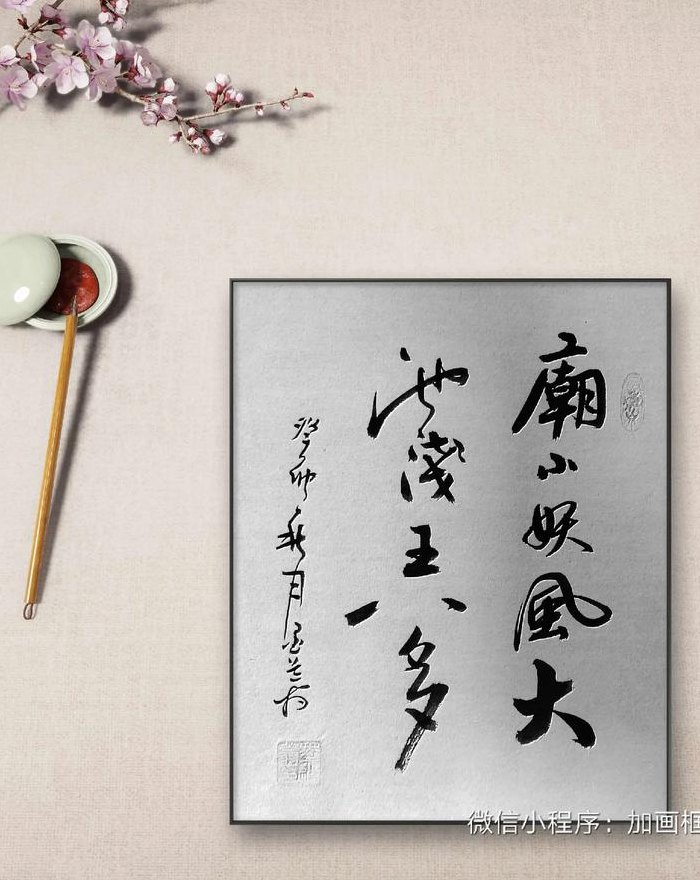 廟小妖風大
池淺王八多
癸卯秋月墨蘭
微信小程序：加画框